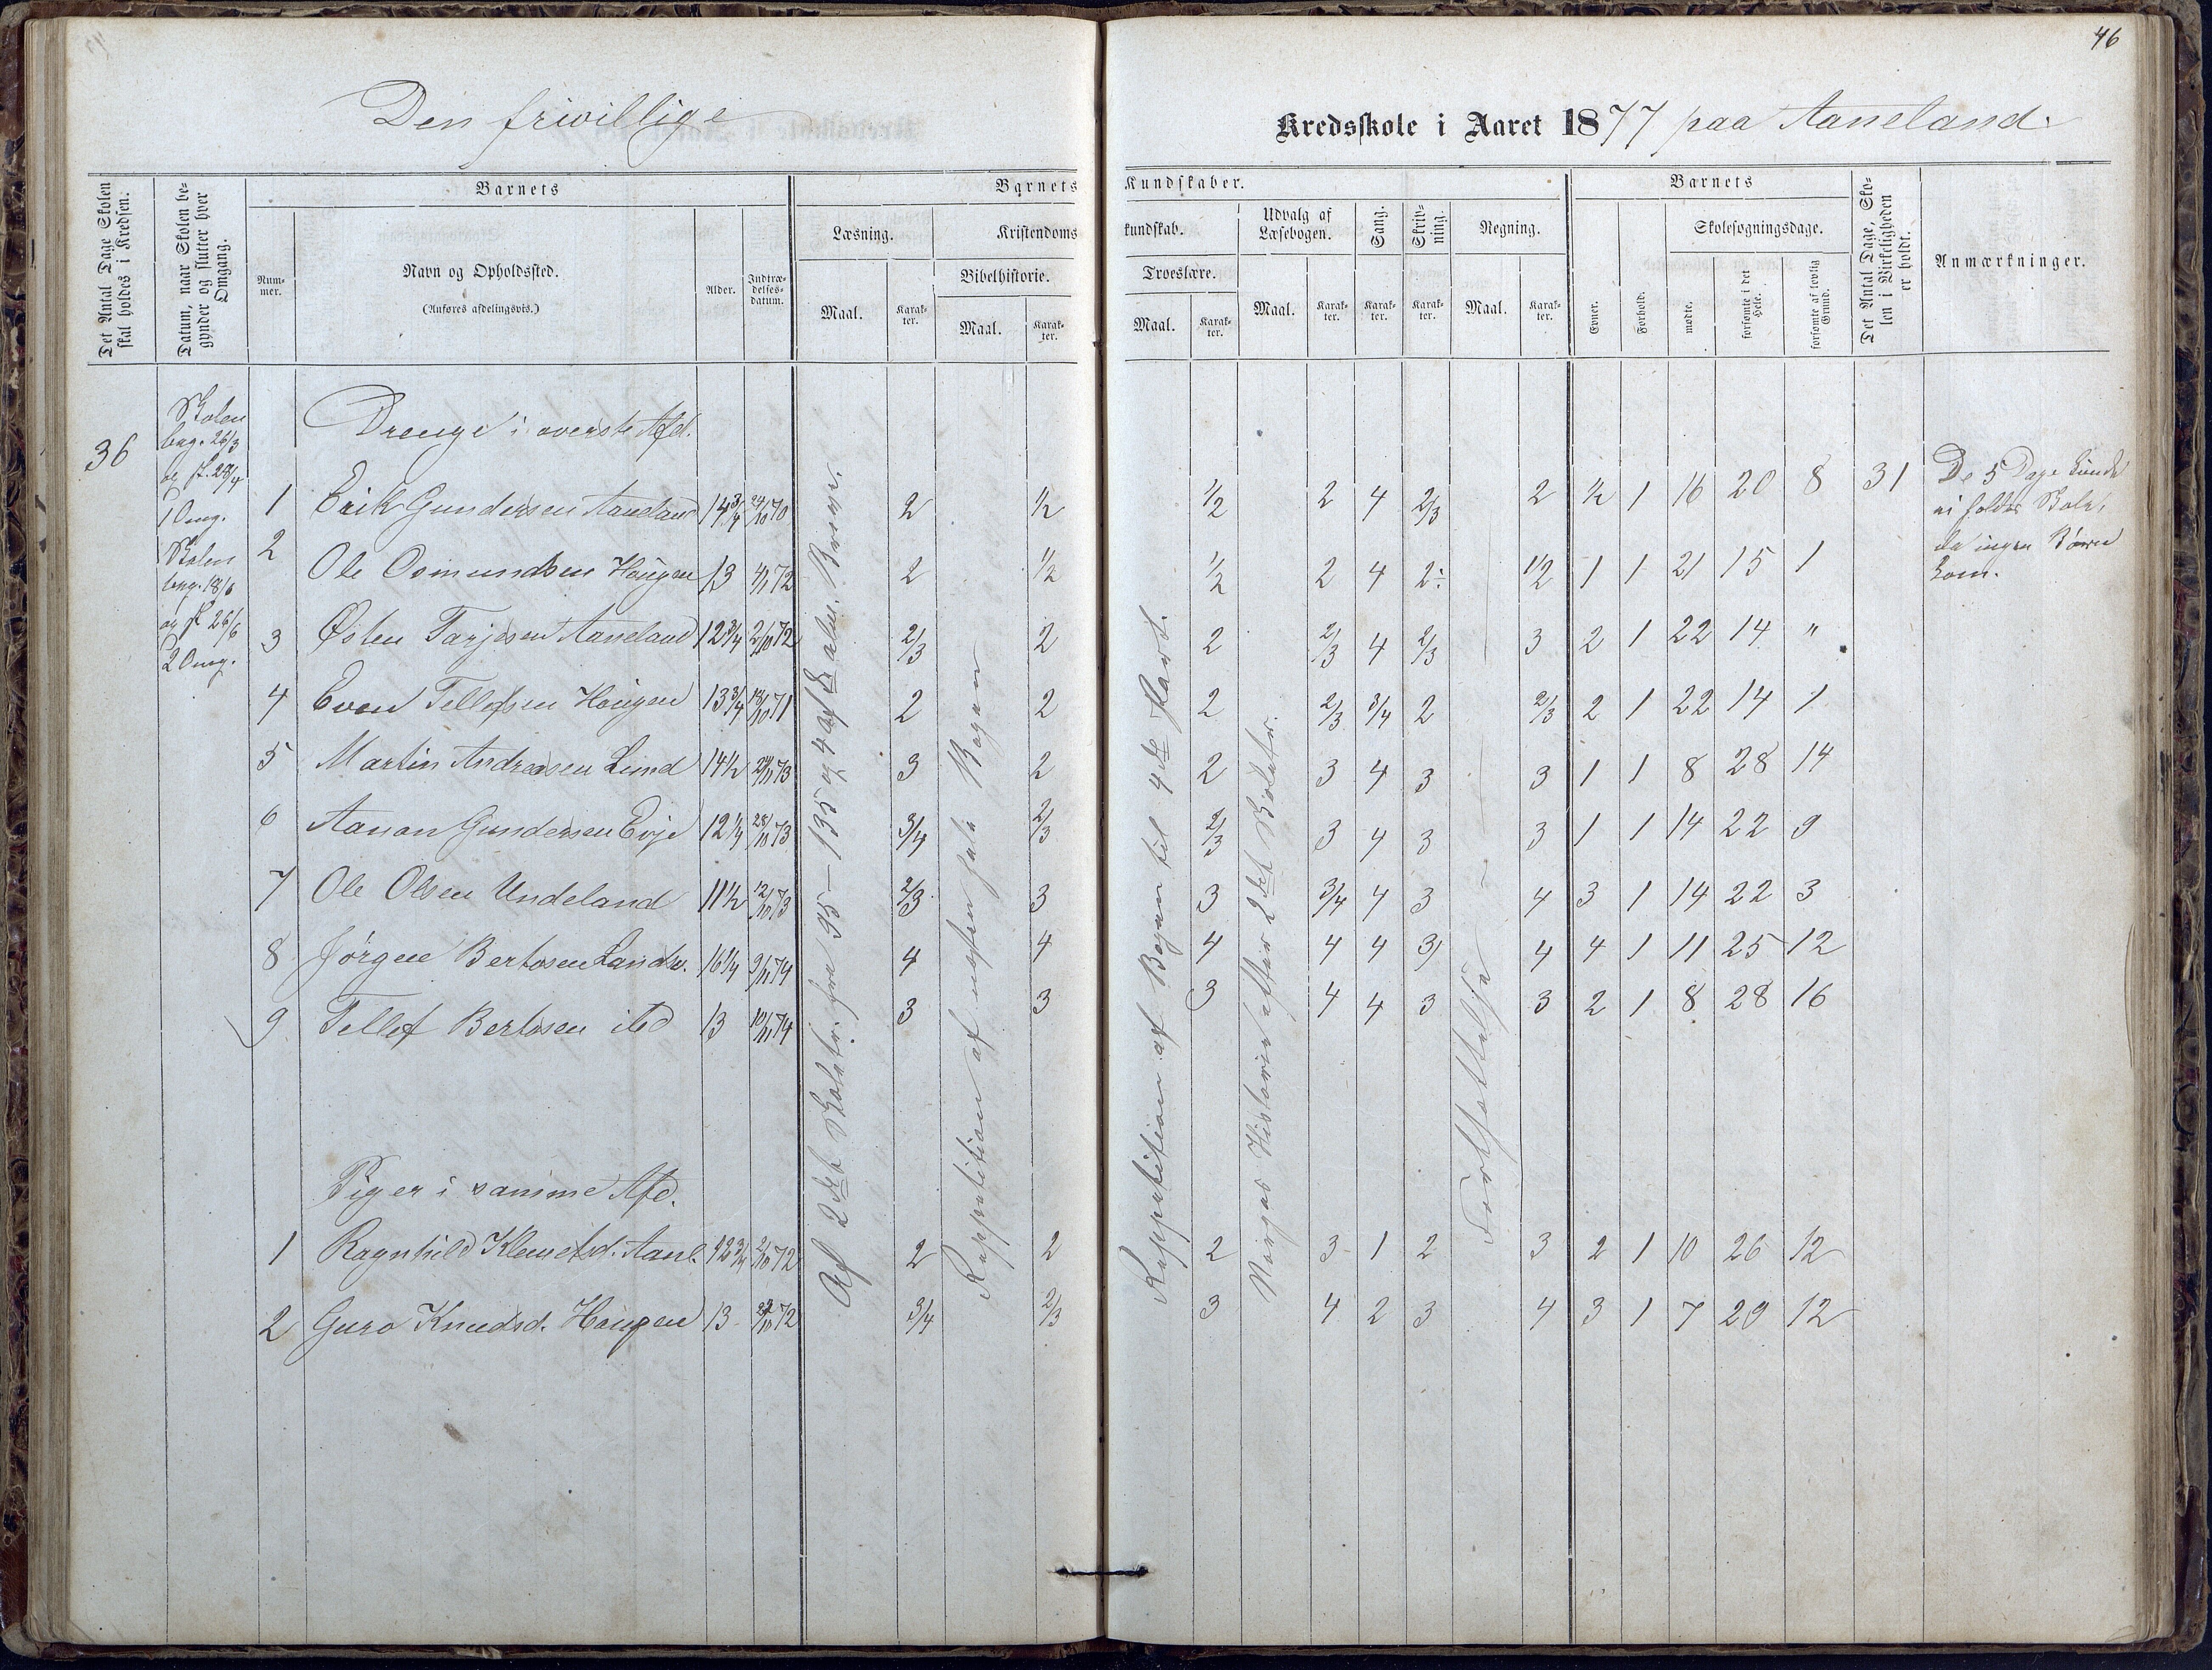 46
Den frivillige Kredsskole i Aaret 1877 paa Aaneland.
Det Antal Dage Skolen skal holdes i Kredsen.
Datum, naar Skolen begynder og slutter hver Omgang.
Barnets
Nummer.
Navn og Opholdssted.
(Anføres afdelingsvis.)
Alder.
Indtrædelsesdatum.
Barnets Kundskaber.
Læsning.
Maal.
Karakter.
Kristendomskundskab.
Bibelhistorie.
Maal.
Karakter.
Troeslære.
Maal.
Karakter.
Udvalg af Læsebogen.
Maal.
Karakter.
Sang.
Karakter.
Skrivning.
Karakter.
Regning.
Maal.
Karakter.
Barnets
Evner.
Forhold.
Skolesøgningsdage.
mødte.
forsømte i det Hele.
forsømte af lovlig Grund.
Det Antal Dage, Skolen i Virkeligheden er holdt.
Anmærkninger.
36
Skolen
beg. 26/3
og sl. 28/4
1 Omg.
Skolen
beg. 18/6
og sl 26/6
2 Omg.
Drenge i øverste Afd.
1 Erik Gundersen Aaneland 14 3/4 24/10 70 2 1/2 1/2 2 4 2/3 2 1/2 1 16 20 8 31
2 Ole Osmundsen Haugen 13 4/11 72 2 1/2 1/2 2 4 2÷ 1/2 1 1 21 15 1
3 Østen Tarjesen Aaneland 12 3/4 2/10 72 2/3 2 2 2/3 4 2/3 3 2 1 22 14 "
4 Even Tellefsen Haugen 13 3/4 18/10 71 2 2 2 2/3 3/4 2 2/3 2 1 22 14 1
5 Martin Andreasen Lund 14 1/2 73 3 2 2 3 4 3 3 1 1 8 28 14
6 Aanon Gundersen Evje 12 1/4 28/10 73 3/4 2/3 2/3 3 4 3 3 1 1 14 22 9
7 Ole Olsen Undeland 11 1/2 12/10 73 2/3 3 3 3/4 4 3 4 3 1 14 22 3
8 Jørgen Bertosen 16 1/4 9/11 74 4 4 4 4 4 3 4 4 1 11 25 12
9 Tellef Bertosen 13 10/11 74 3 3 3 4 4 3 3 2 1 8 28 16
Piger i samme Afd.
1 Ragnhild Klemetsd. Aanl. 12 3/4 2/10 72 2 2 2 3 1 2 3 2 1 10 26 12
2 Guro Knudsd. Haugen 13 72 3/4 2/3 3 4 2 3 4 3 1 7 29 12
Af 2det Skoletr. fra 95 – 135 og 4 af
Reppetition af næsten hele Bogen
Reppetition af Bogen til 4de Part.
Norges Historie efter 2det Skoletr.
Fortsættelse
De 5 Dage kunde
ei holdes Skole,
da ingen Børn
kom.